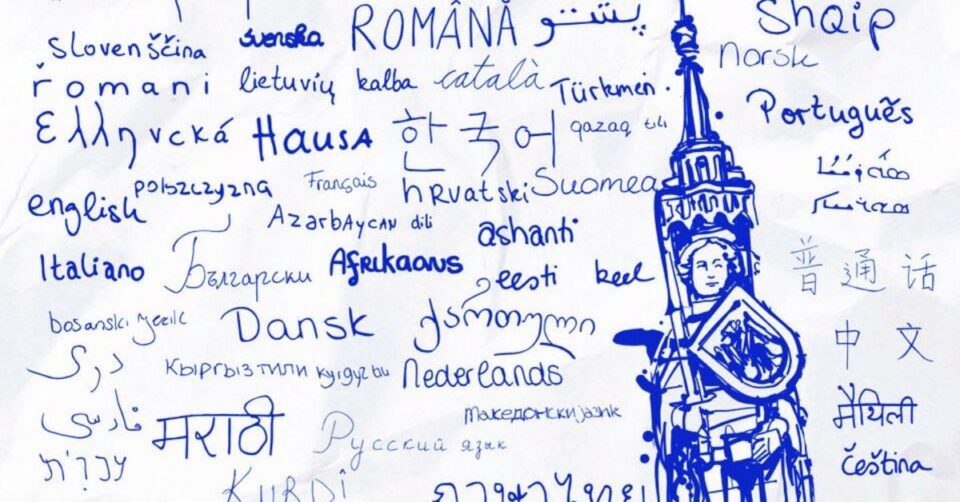 Slovenščina
svenska
ROMÂNĂ
پښتو
Shqip
Norsk
romani
lietuvių kalba
català
Türkmen
Português
Ελληνικά
Hausa
한국어
qazaq tili
polszczyzna
Français
hrvatski
Suomea
english
Azərbaycan dili
ashanti
Italiano
Български
Afrikaans
eesti keel
普通话
bosanski jezik
Dansk
ქართული
中文
دری
Кыргыз тили
Nederlands
македонски јазик
मैथिली
فارسی
मराठी
Русский язык
čeština
עִבְרִית
Kurdî
ภาษาไทย